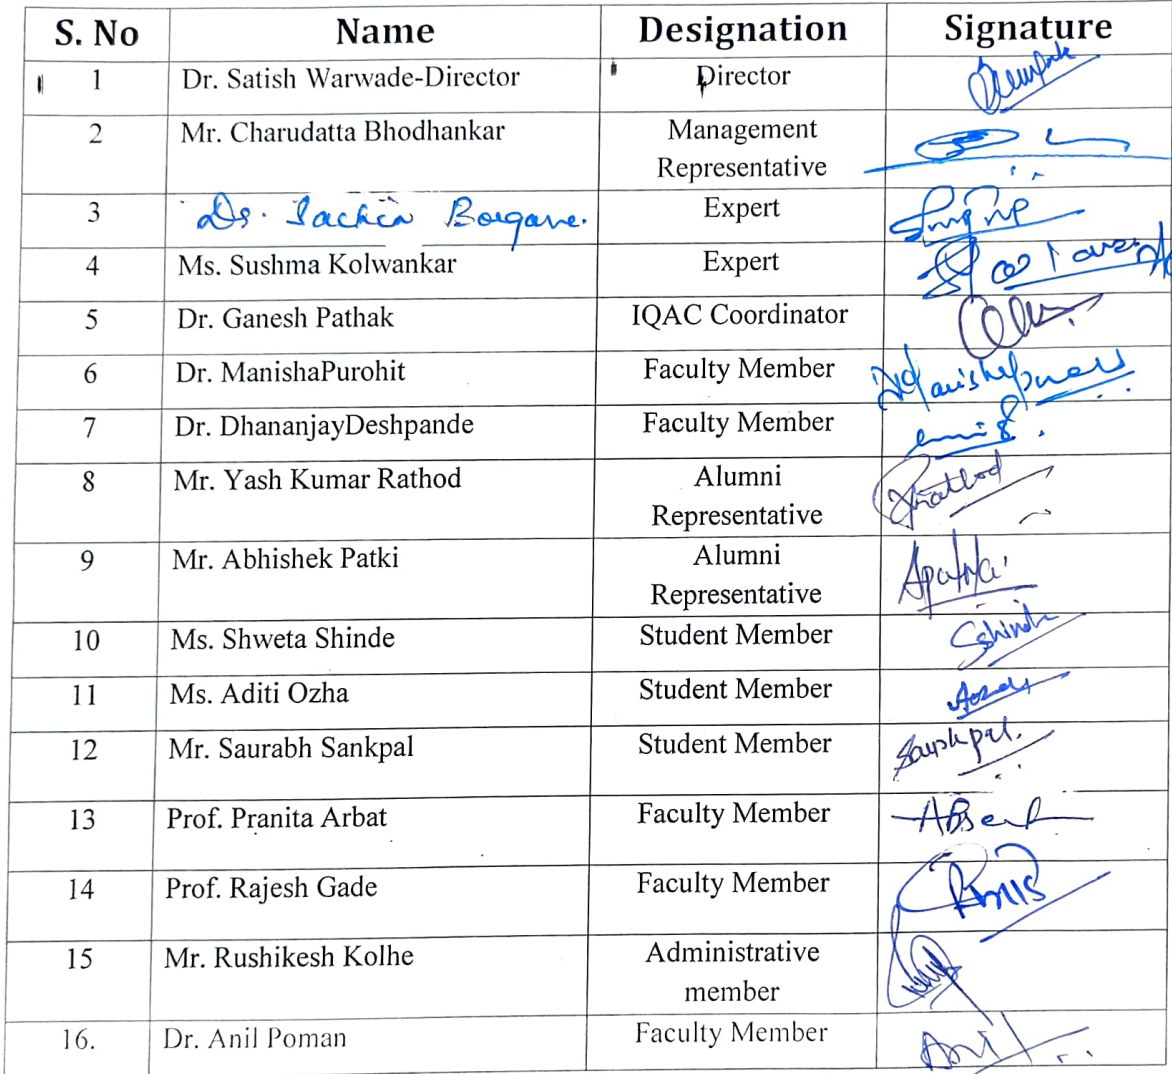 S. No Name Designation Signature
1 Dr. Satish Warwade-Director Director
2 Mr. Charudatta Bhodhankar Management
Representative
3 Dr. Sachin Borgave. Expert
4 Ms. Sushma Kolwankar Expert
5 Dr. Ganesh Pathak IQAC Coordinator
6 Dr. ManishaPurohit Faculty Member
7 Dr. DhananjayDeshpande Faculty Member
8 Mr. Yash Kumar Rathod Alumni
Representative
9 Mr. Abhishek Patki Alumni
Representative
10 Ms. Shweta Shinde Student Member
11 Ms. Aditi Ozha Student Member
12 Mr. Saurabh Sankpal Student Member
13 Prof. Pranita Arbat Faculty Member Absent
14 Prof. Rajesh Gade Faculty Member
15 Mr. Rushikesh Kolhe Administrative
member
16. Dr. Anil Poman Faculty Member Anil